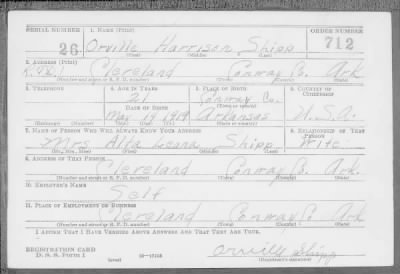 SERIAL NUMBER 1. NAME (Print) ORDER NUMBER
26 Orville Harrison Shipp 712
(First) (Middle) (Last)
2. ADDRESS (Print)
R.F.D. 1 Cleveland Conway Co. Ark
(Number and street or R. F. D. number) (Town) (County) (State)
3. TELEPHONE 4. AGE IN YEARS 5. PLACE OF BIRTH 6. COUNTRY OF CITIZENSHIP
21 Conway Co.
DATE OF BIRTH (Town or county)
May 1919 Arkansas U.S.A.
(Exchange) (No.) (Mo.) (Day) (Yr.) (State or country)
7. NAME OF PERSON WHO WILL ALWAYS KNOW YOUR ADDRESS 8. RELATIONSHIP OF THAT PERSON
Mrs Alfa Shipp Wife
(Mr., Mrs., Miss) (First) (Middle) (Last)
9. ADDRESS OF THAT PERSON
Cleveland Conway Co. Ark.
(Number and street or R. F. D. number) (Town) (County) (State)
10. EMPLOYER'S NAME
Self
11. PLACE OF EMPLOYMENT OR BUSINESS
Cleveland Conway Co Ark
(Number and street or R. F. D. number) (Town) (County) (State)
I AFFIRM THAT I HAVE VERIFIED ABOVE ANSWERS AND THAT THEY ARE TRUE.
REGISTRATION CARD
D. S. S. Form 1 (over) Orville Shipp
(Registrant's signature)